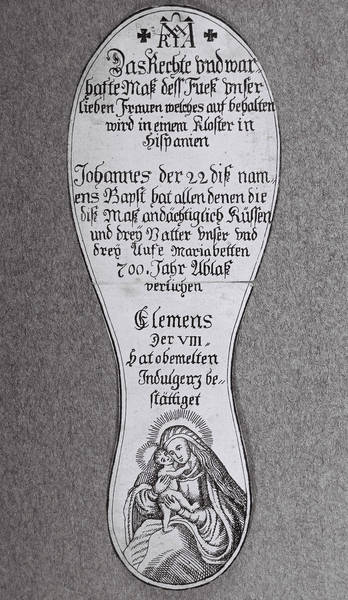 MARIA
Das Rechte vnd war-
haffte Maß deß Fueß vnser
lieben Frauen welches auf behalten
wird in einem Kloster in
Hispanien
Johannes der 22 diß nam-
ens Bapst hat allen denen die
diß Maß andächtiglich Küssen
und dreÿ Vatter vnser vnd
dreÿ Aufe Maria betten
700. Jahr Ablaß
verlichen
Clemens
Der VIII
hat obemelten
Indulgenz be-
stättiget